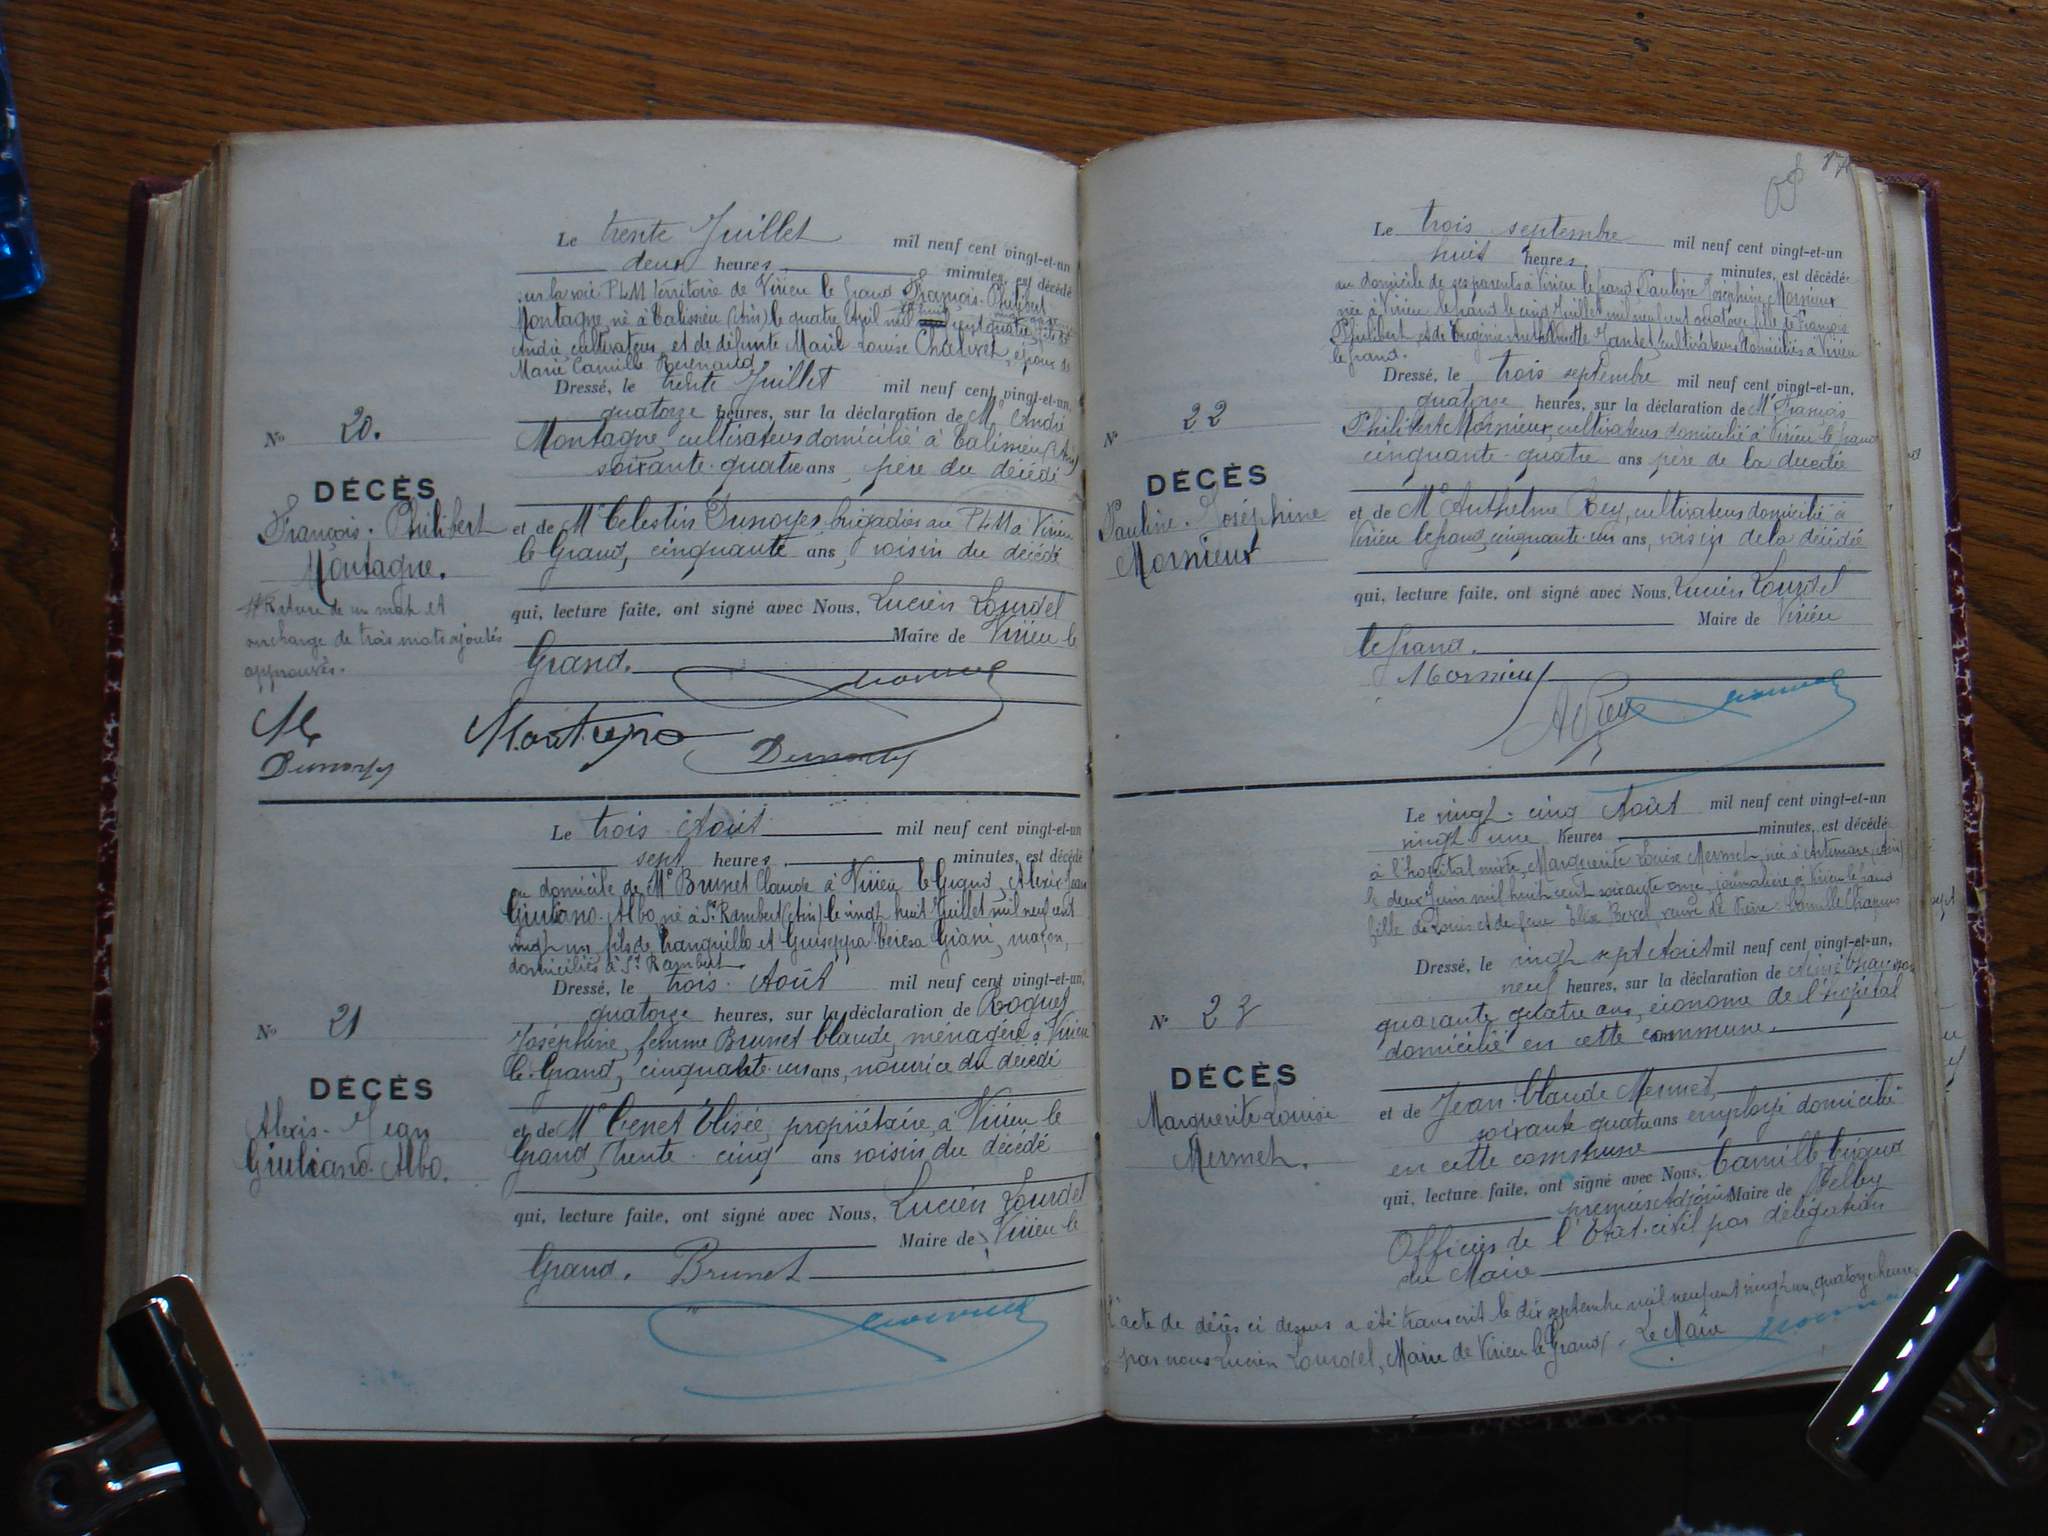 Le trente Juillet mil neuf cent vingt-et-un
deux heures minutes, est décédé
sur la voie PLM territoire de Virieu le Grand François. Philibert
Montagne, né à Talissieu (Ain) le quatre Avril mil huit cent quatre
André cultivateur, et de défunte Marie Louise Chalvet, époux de
Marie Camille Reynaud
Dressé, le trente Juillet mil neuf cent vingt-et-un,
quatorze heures, sur la déclaration de Mr André
Montagne cultivateur domicilié à Talissieu (Ain)
soixante-quatre ans, père du décédé
No 20.
DÉCÈS
François. Philibert
Montagne.
Rature de un mot et
surcharge de trois mots ajoutés
approuvés.
et de Mr Celestin Dunoyer brigadier au PLM à Virieu
le Grand, cinquante ans, voisin du décédé
qui, lecture faite, ont signé avec Nous, Lucien Lourdel
Maire de Virieu le
Grand.
Dunoyer
Dunoyer
Le trois Août mil neuf cent vingt-et-un
sept heures minutes, est décédé
au domicile de Mr Brunet Claude à Virieu le Grand, Alexis-Jean
Giuliano-Albo, né à St Rambert (Ain) le vingt huit Juillet mil neuf cent
vingt un, fils de Tranquillo et Guiseppa Teresa Giani, maçon,
domiciliés à St Rambert.
Dressé, le trois Août mil neuf cent vingt-et-un,
quatorze heures, sur la déclaration de Roguet
Joséphine, femme Brunet Claude, ménagère à Virieu
le Grand, cinquante-un ans, nourrice du décédé
No 21
DÉCÈS
Alexis-Jean
Giuliano-Albo.
et de Mr Tenet Elisée, propriétaire, à Virieu le
Grand, trente-cinq ans voisin du décédé
qui, lecture faite, ont signé avec Nous, Lucien Lourdel
Maire de Virieu le
Grand. Brunet
Le trois septembre mil neuf cent vingt-et-un
huit heures minutes, est décédé
au domicile de ses parents à Virieu le grand Pauline Joséphine Mornieux
née à Virieu le grand le cinq Juillet mil neuf cent quatorze fille de François
Philibert et de Eugénie Jantet, cultivateurs domiciliés à Virieu
le grand.
Dressé, le trois septembre mil neuf cent vingt-et-un,
quatorze heures, sur la déclaration de Mr François
Philibert Mornieux, cultivateur domicilié à Virieu le grand
cinquante-quatre ans père de la décédée
No 22
DÉCÈS
Pauline-Joséphine
Mornieux
et de Mr Anthelme Rey, cultivateur domicilié à
Virieu le grand, cinquante-un ans, voisin de la décédée
qui, lecture faite, ont signé avec Nous, Lucien Lourdel
Maire de Virieu
le grand.
Mornieux
A Rey
Le vingt-cinq Août mil neuf cent vingt-et-un
vingt une heures minutes, est décédé
à l'hopital mixte, Marguerite Louise Mermet, née à Artemare (Ain)
le deux Juin mil huit cent soixante onze, journalière à Virieu le grand
fille de Louis et de feue Elise veuve de Pierre Camille Chapuis
Dressé, le vingt sept Août mil neuf cent vingt-et-un,
neuf heures, sur la déclaration de Aimé
quarante quatre ans, économe de l'hopital
domicilié en cette commune.
No 23
DÉCÈS
Marguerite Louise
Mermet.
et de Jean Claude Mermet,
soixante quatre ans employé domicilié
en cette commune
qui, lecture faite, ont signé avec Nous, Camille
premier Adjoint Maire de Belley
Officier de l'Etat-civil par délégation
du Maire
L'acte de décès ci dessus a été transcrit le dix septembre mil neuf cent vingt un, quatorze heures
par nous Lucien Lourdel, Maire de Virieu le Grand. Le Maire